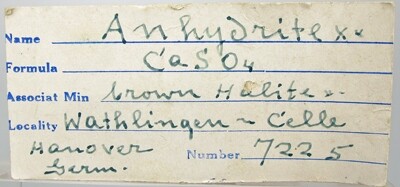 Name Anhydrite xx
Formula CaSO4
Associat Min brown Halite x
Locality Wathlingen - Celle
Hanover Number 7225
Germ.